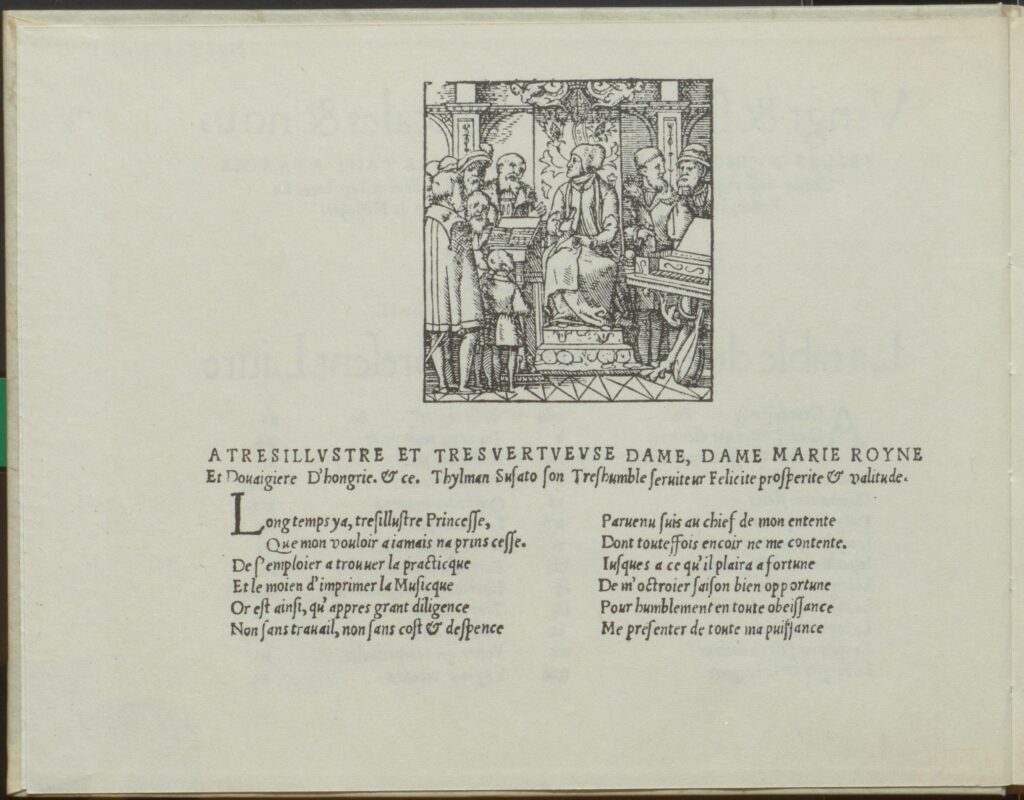 A TRESILLVSTRE ET TRESVERTVEVSE DAME, DAME MARIE ROYNE
Et Douaigiere D'hongrie. & ce. Thylman Susato son Treshumble seruiteur Felicite prosperite & valitude.
Long temps ya, tresillustre Princesse,
Que mon vouloir a iamais na prins cesse.
De s'emploier a trouuer la practicque
Et le moien d'imprimer la Musicque
Or est ainsi, qu'appres grant diligence
Non sans trauail, non sans cost & despence
Paruenu suis au chief de mon entente
Dont touteffois encoir ne me contente.
Iusques a ce qu'il plaira a fortune
De m'octroier saison bien opportune
Pour humblement en toute obeissance
Me presenter de toute ma puissance